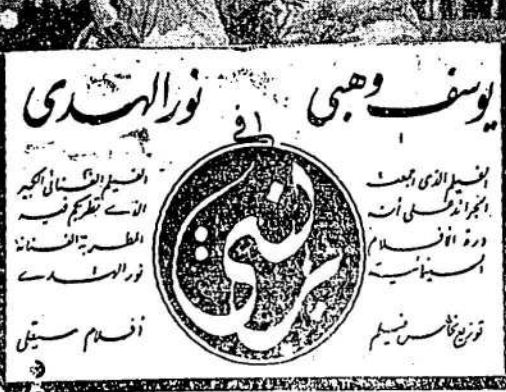 يوسف وهبي
نور الهدى
في
برلنتي
الفيلم الذى اجمعت
الجرائد على أنه
درة الأفلام
السينمائية
توزيع نحاس فيلم
الفيلم الغنائى الكبير
الذى تطربكم فيه
المطربة الفنانة
نور الهدى
أفلام